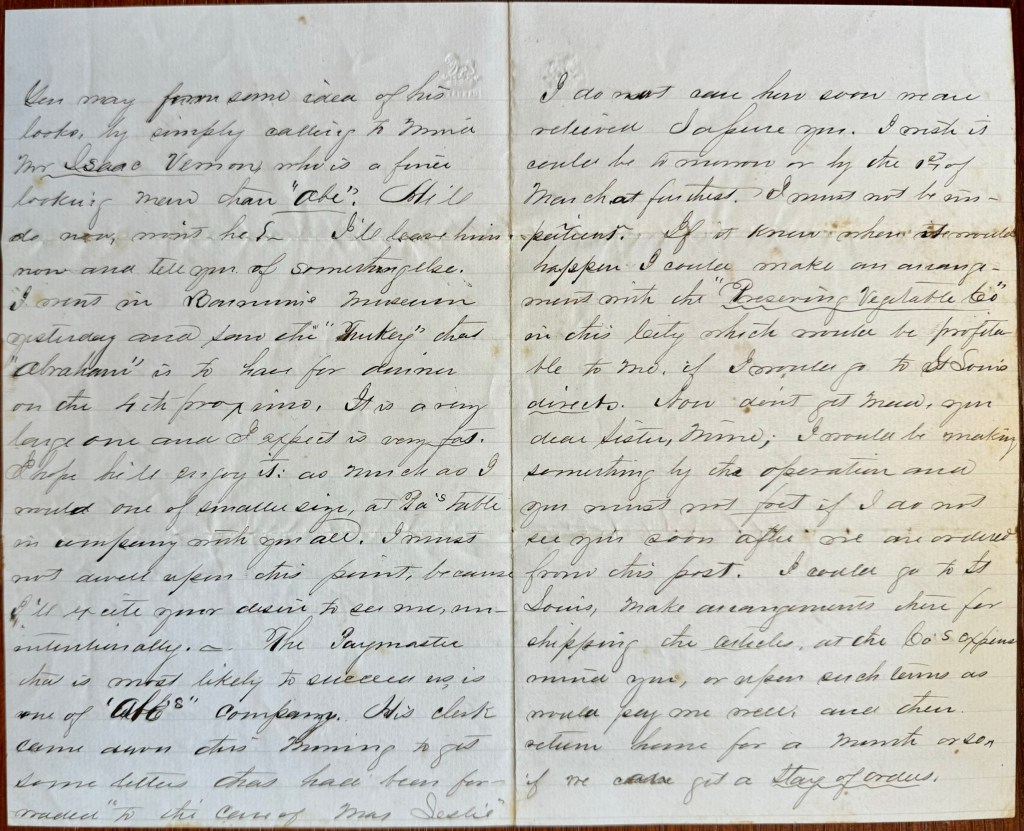 You may form some idea of his
looks, by simply calling to mind
Mr Isaac Vernon, who is a finer
looking man than "Abe". He'll
do now, won't he? — I'll leave him
now and tell you of something else.
I went in Barnum's Museum
yesterday and saw the "Turkey" that
"Abraham" is to have for dinner
on the 4th proximo. It is a very
large one and I expect is very fat.
I hope he'll enjoy it: as much as I
would one of smaller size, at Pa's table
in company with you all. I must
not dwell upon this point, because
I'll excite your desire to see me, un-
intentionally. — The Paymaster
that is most likely to succeed us, is
one of "Abe's" company. His clerk
came down this morning to get
some letters that had been for-
warded "to the care of Maj Leslie"
I do not care how soon we are
relieved I assure you. I wish it
could be tomorrow or by the 1st of
March at furthest. I must not be im-
patient. If I knew when it would
happen I could make an arrange-
ment with the "Preserving Vegetable Co"
in this City which would be profita-
ble to me, if I would go to St Louis
direct. Now don't get mad, you
dear sister, mine; I would be making
something by the operation and
you must not fret if I do not
see you soon after we are ordered
from this post. I could go to St
Louis, make arrangements there for
shipping the articles, at the Co's expense
mind you, or upon such terms as
would pay me well, and then
return home for a month or so,
if we can get a stay of orders.